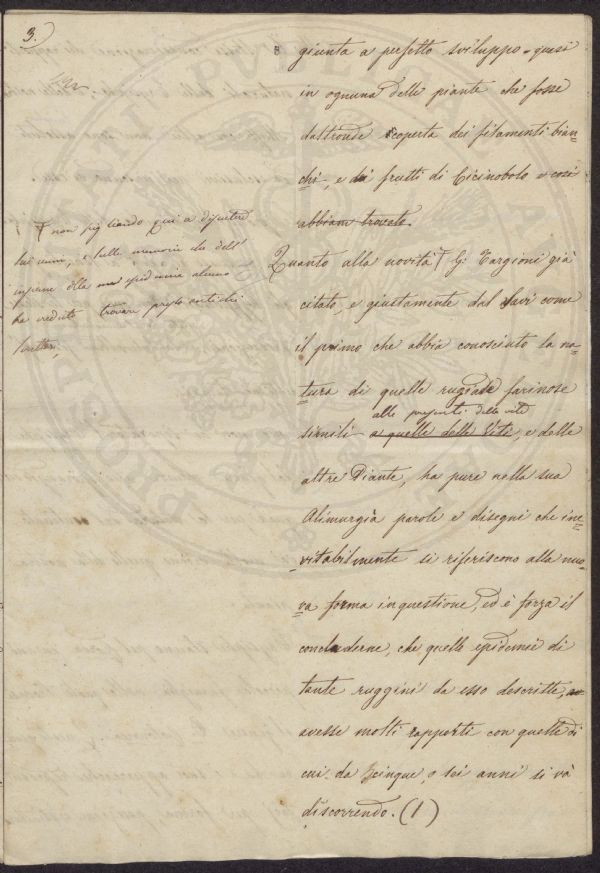 3.
giunta a perfetto sviluppo quasi
in ognuna delle piante che fosse
daltronde scoperta dei filamenti bian=
chi, e di frutti di Cicinobolo e così
abbiam trovato.
Quanto alla novità † G: Targioni già
citato, e giustamente dal Savi come
il primo che abbia conosciuto la na=
tura di quelle rugiade farinose
alle presenti delle viti
simili a quelle delle Viti, e delle
altre Piante, ha pure nella sua
Alimurgia parole e disegni che ine=
vitabilmente si riferiscono alla nuo=
va forma in questione, ed è forza il
concluderne, che quelle epidemie di
tante ruggini da esso descritte,
avesse molti rapporti con quelle di
cui da cinque, o sei anni si và
discorrendo. (1)
† non pigliando qui a discutere
sulle memorie che dell'
epidemia alcuno
ha creduto trovare presso antichi
scrittori,
PROSPERI